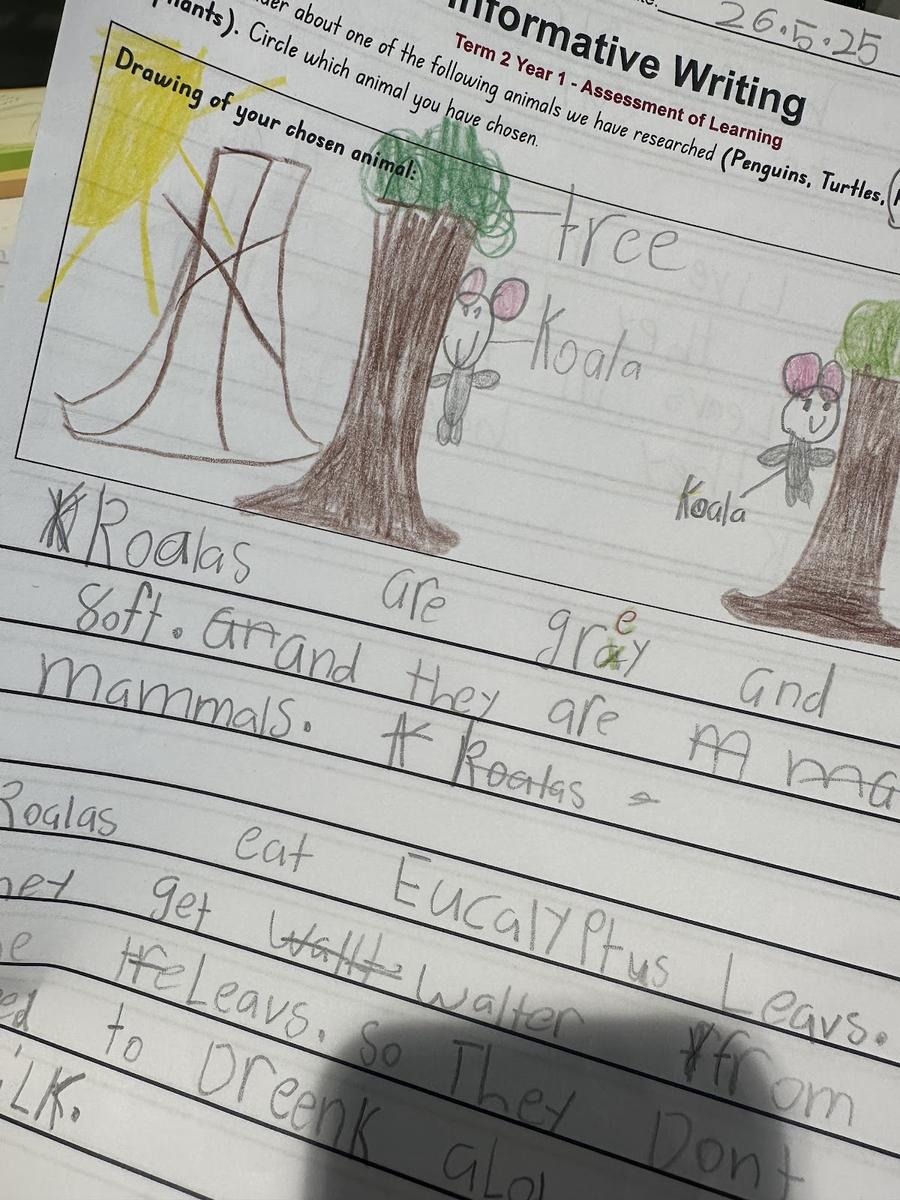 26.5.25
Informative Writing
Term 2 Year 1 - Assessment of Learning
about one of the following animals we have researched (Penguins, Turtles,
Circle which animal you have chosen.
Drawing of your chosen animal:
tree
Koala
Koala
Koalas are grey and
soft. and they are
mammals. Koalas
Koalas eat Eucalyptus Leavs.
get Wallte Walter from
the Leavs. So They Dont
to Dreenk